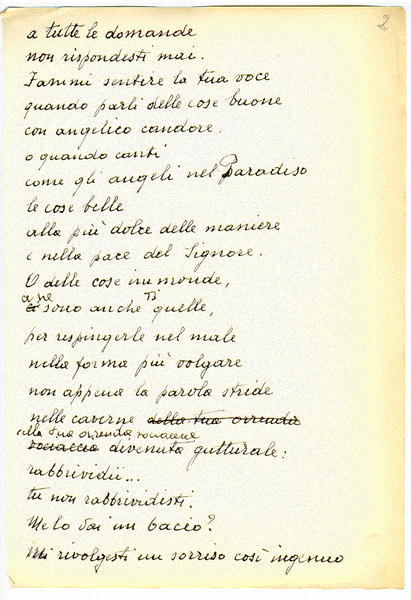 2
a tutte le domande
non rispondesti mai.
Fammi sentire la tua voce
quando parli delle cose buone
con angelico candore,
o quando canti
come gli angeli nel Paradiso
le cose belle
alla più dolce delle maniere
e nella pace del Signore.
O delle cose immonde,
ce ne sono anche quelle,
per respingerle nel male
nella forma più volgare
non appena la parola stride
nelle caverne della tua orrenda
della tua orrenda
vociaccia divenuta gutturale:
rabbrividii...
tu non rabbrividisti.
Me lo dai un bacio?
Mi rivolgesti un sorriso così ingenuo